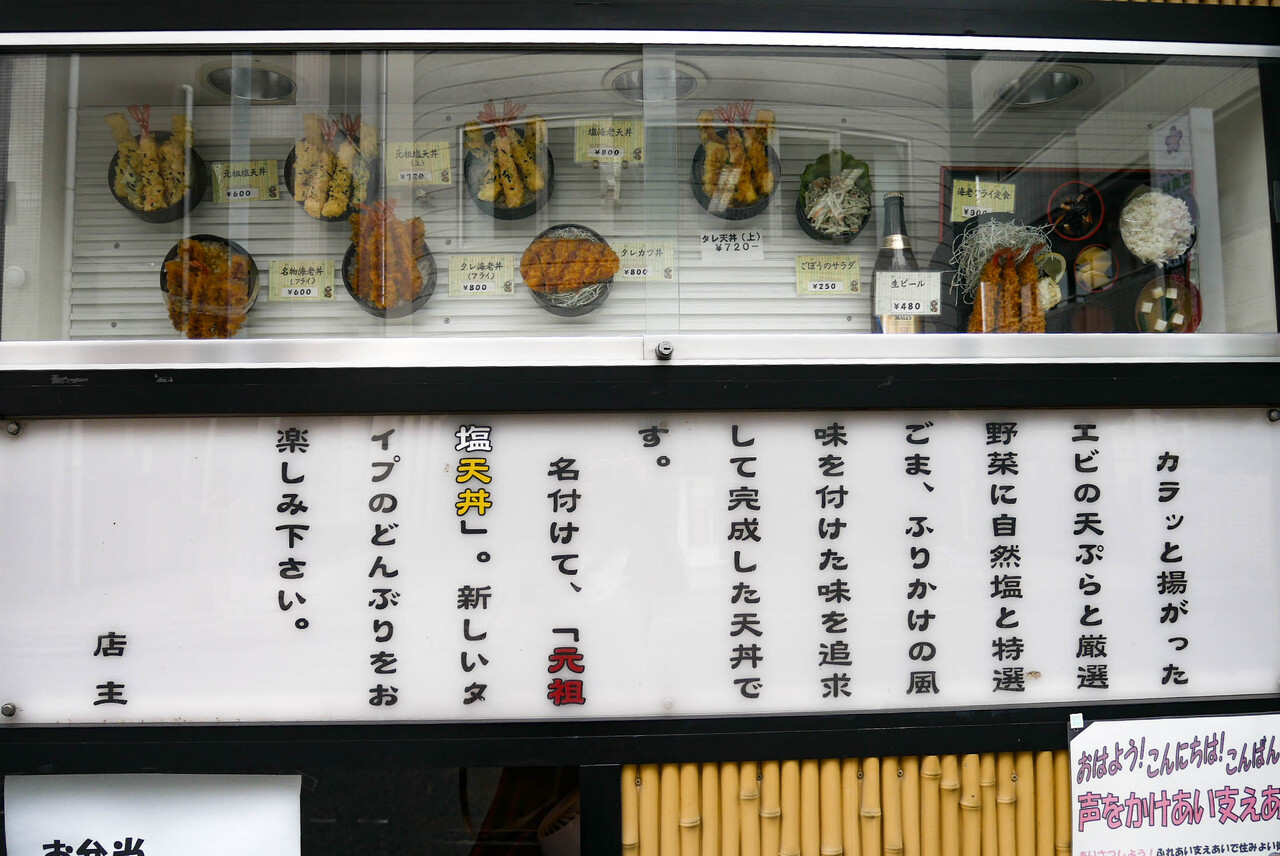 元祖塩天丼
¥600
元祖塩天丼
(上)
¥720
塩海老天丼
¥800
名物海老丼
(フライ)
¥600
タレ海老丼
(フライ)
¥800
タレカツ丼
¥800
タレ天丼(上)
¥720-
ごぼうのサラダ
¥250
生ビール
¥480
海老フライ定食
¥900
カラッと揚がった
エビの天ぷらと厳選
野菜に自然塩と特選
ごま、ふりかけの風
味を付けた味を追求
して完成した天丼で
す。
名付けて、「元祖
塩天丼」。新しいタ
イプのどんぶりをお
楽しみ下さい。
店主
お弁当
おはよう!こんにちは!こんばん
声をかけあい支えあ
あいさつしよう!ふれあい支えあいで住みよい